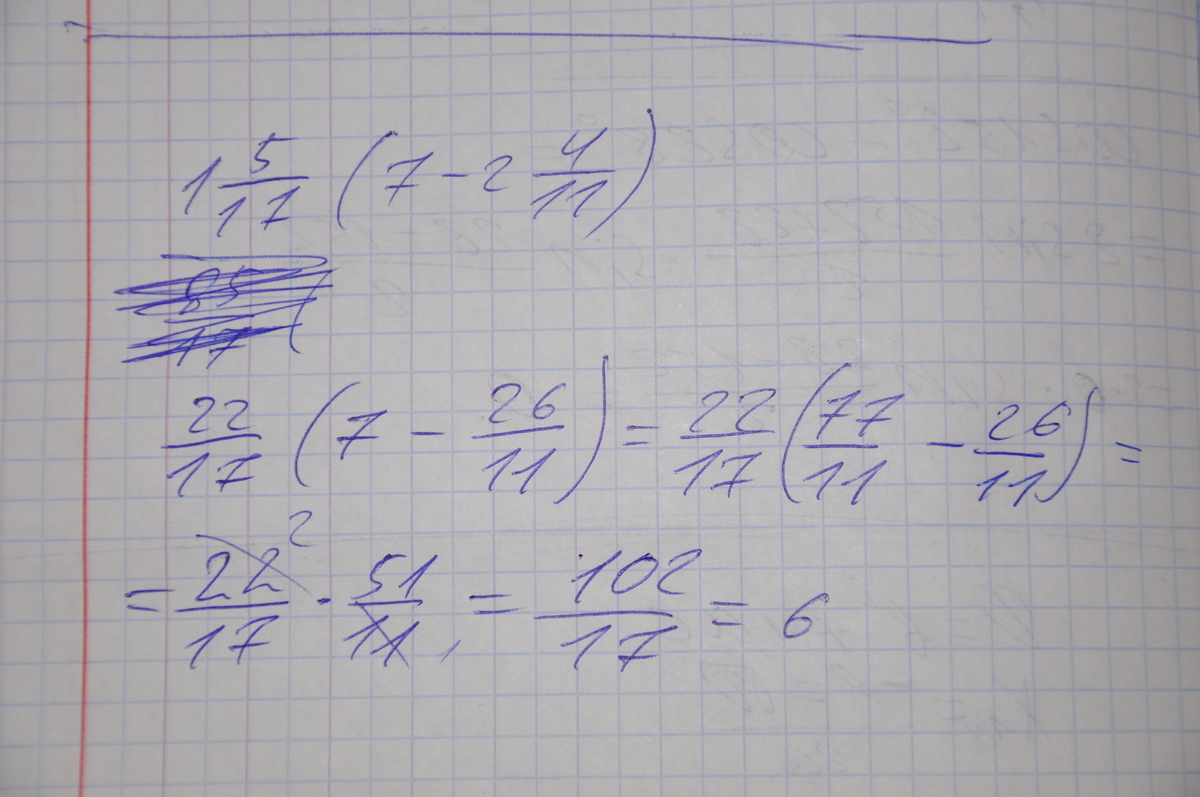 1 5/17 (7 - 2 4/11)
22/17 (7 - 26/11) = 22/17 (77/11 - 26/11) =
= 22/17 2 · 51/11 = 102/17 = 6